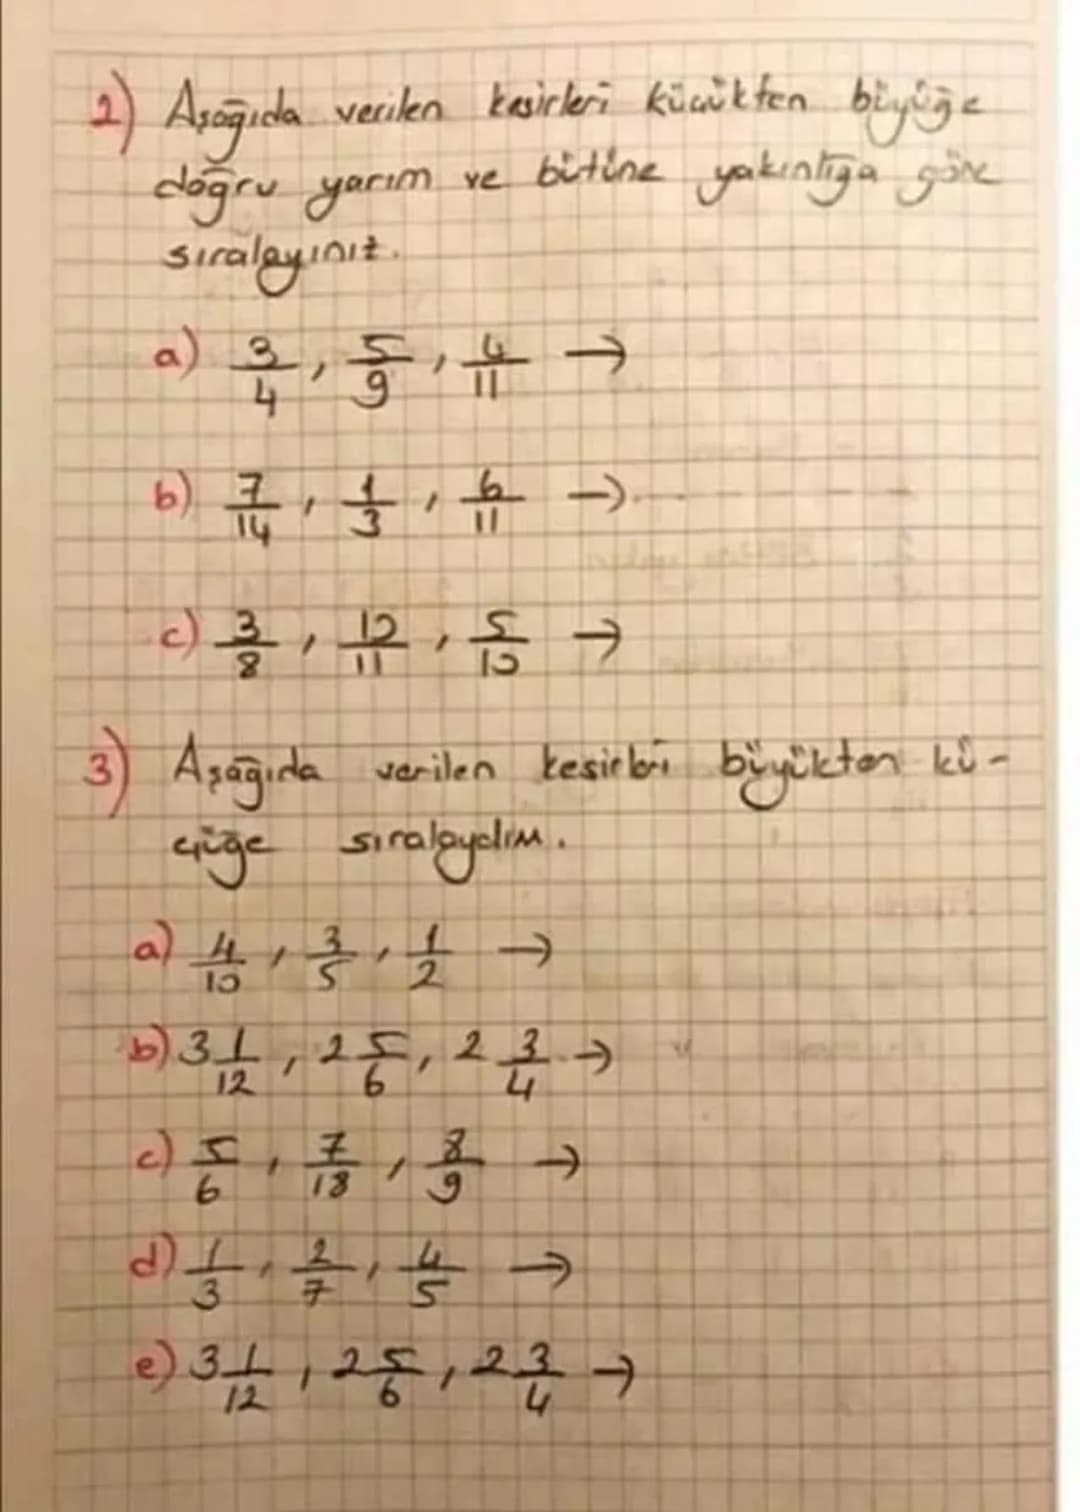 2) Aşağıda verilen kesirleri küçükten büyüğe
doğru yarım ve bütüne yakınlığa göre
sıralayınız.
a) 3/4, 5/9, 4/11 →
b) 7/14, 1/3, 6/11 →
c) 3/8, 12/11, 5/10 →
3) Aşağıda verilen kesirleri büyükten kü-
çüğe sıralaydım.
a) 4/10, 3/5, 1/2 →
b) 3 1/12, 2 5/6, 2 3/4 →
c) 5/6, 7/18, 8/9 →
d) 1/3, 2/7, 4/5 →
e) 3 1/12, 2 5/6, 2 3/4 →